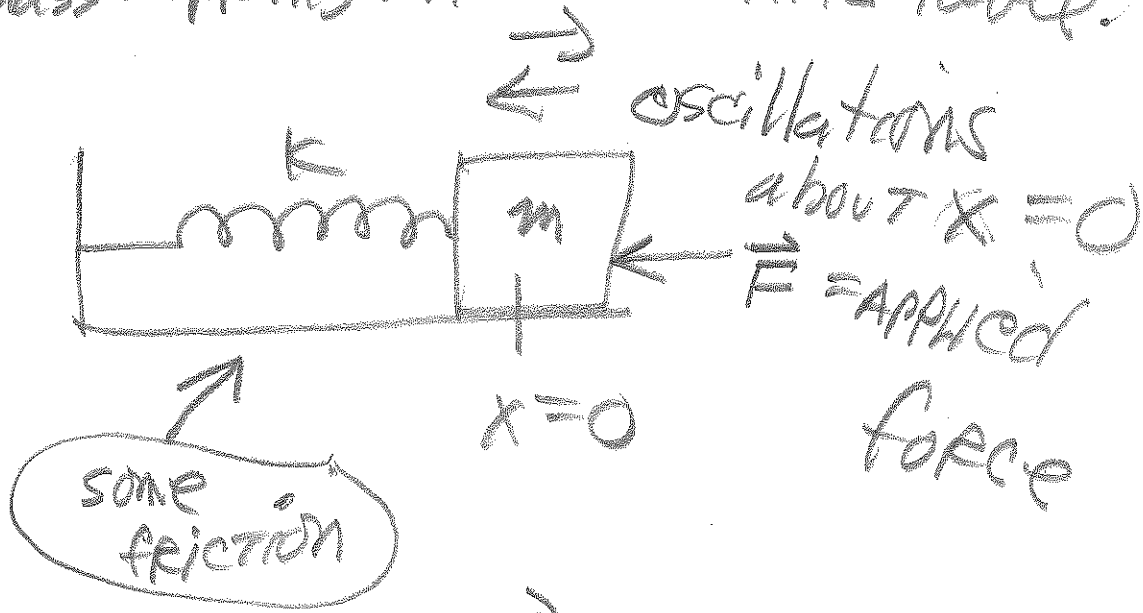 oscillations
K
about x = 0
m
F = APPLIED
force
x=0
some
friction